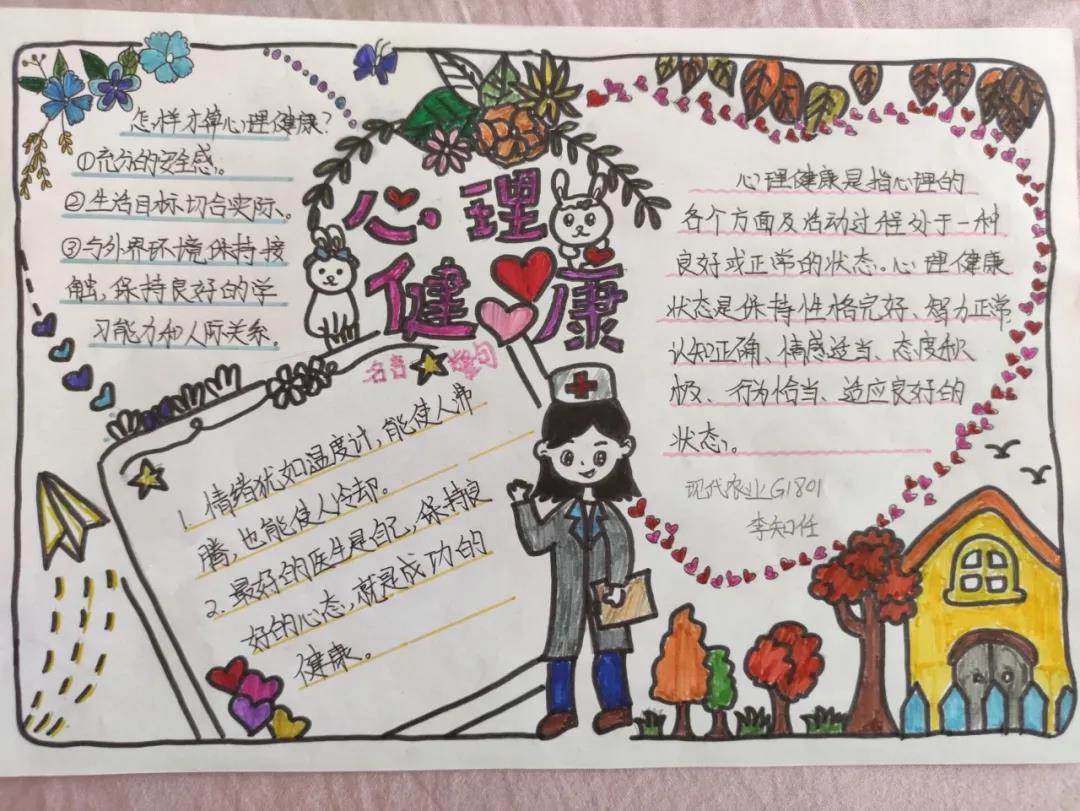 怎样才算心理健康?
①充分的安全感。
②生活目标切合实际、。
③与外界环境保持接
触,保持良好的学
习能力和人际关系。
心理
健康
名言警句
1.情绪犹如温度计,能使人沸
腾,也能使人冷却。
2.最好的医生是自己,保持良
好的心态,就是成功的
健康。
心理健康是指心理的
各个方面及活动过程处于一种
良好或正常的状态。心理健康
状态是保持性格完好、智力正常
认知正确、情感适当、态度积
极、行为恰当、适应良好的
状态。
现代农业G1801
李知任